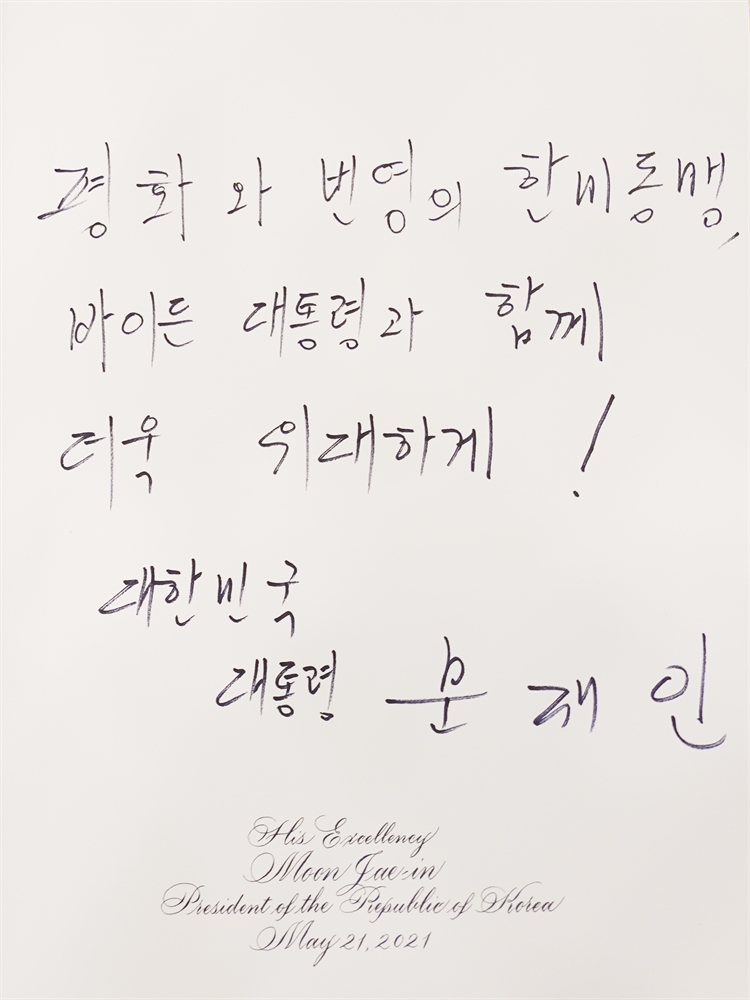 평화와 번영의 한미동맹,
바이든 대통령과 함께
더욱 위대하게!
대한민국
대통령 문재인
His Excellency
Moon Jae-in
President of the Republic of Korea
May 21, 2021